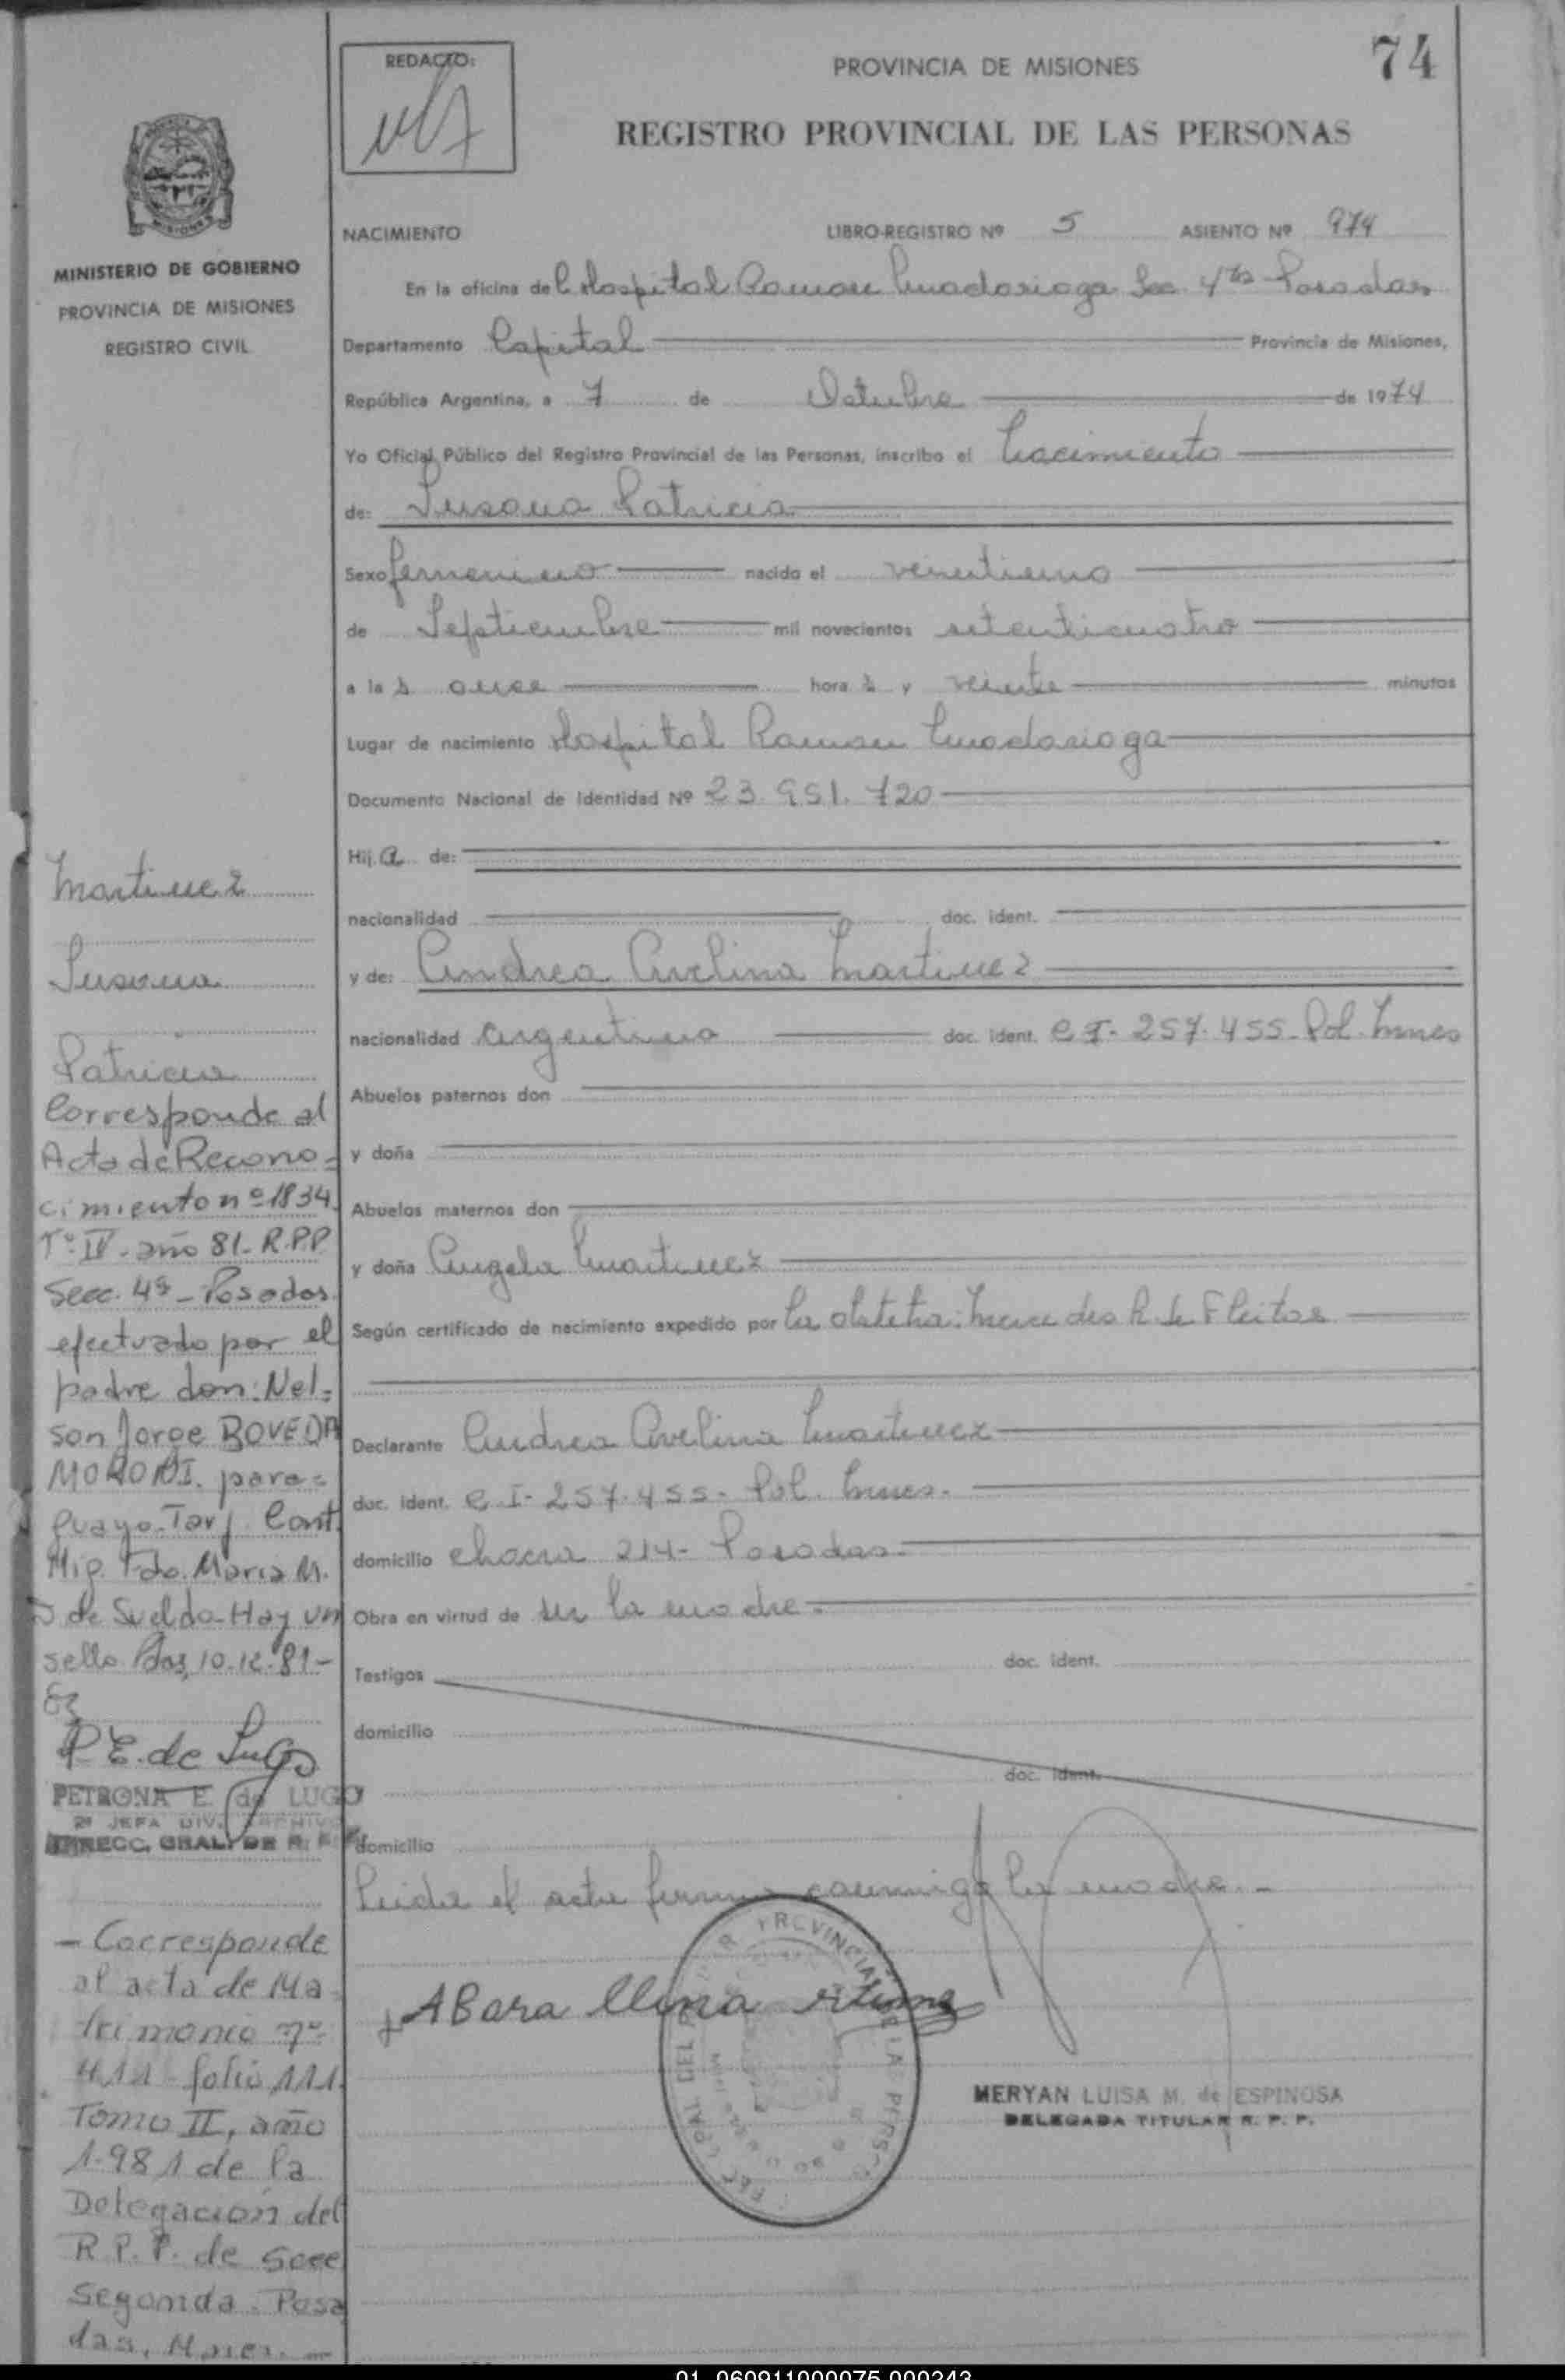 74
REDACTO:
PROVINCIA DE MISIONES
REGISTRO PROVINCIAL DE LAS PERSONAS
MINISTERIO DE GOBIERNO
PROVINCIA DE MISIONES
REGISTRO CIVIL
NACIMIENTO LIBRO-REGISTRO Nº 5 ASIENTO Nº 974
En la oficina del Hospital Ramon Madariaga Sec. 4ta Posadas
Departamento Capital Provincia de Misiones,
República Argentina, a 7 de Octubre de 1974
Yo Oficial Público del Registro Provincial de las Personas, inscribo el Nacimiento
de: Susana Patricia
Sexo femenino nacido el veintiuno
de Septiembre mil novecientos setenticuatro
a las once horas y veinte minutos
Lugar de nacimiento Hospital Ramon Madariaga
Documento Nacional de Identidad Nº 23.951.720
Hija de:
nacionalidad doc. ident.
y de: Andrea Avelina Martinez
nacionalidad argentina doc. ident. C.I- 257.455- Pol. Mnes
Abuelos paternos don
y doña
Abuelos maternos don
y doña Angela Martinez
Según certificado de nacimiento expedido por la obstetra: Mercedes R. de Fleitas
Declarante Andrea Avelina Martinez
doc. ident. C.I- 257.455- Pol. Mnes.
domicilio chacra 214- Posadas-
Obra en virtud de ser la madre.
Testigos doc. ident.
domicilio
doc. ident.
domicilio
Leida el acta firma conmigo la madre.-
MERYAN LUISA M. de ESPINOSA
DELEGADA TITULAR R. P. P.
Martinez
Susana
Patricia
Corresponde al
Acta de Recono=
cimiento nº 1834.
Tº IV- año 81- R.P.P
Secc. 4ª - Posadas
efectuado por el
padre don: Nel=
son Jorge BOVEDA
para=
guayo- Tarj. Cont.
Mig. Fdo. Maria M.
de Sueldo- Hay un
sello Pdas, 10-12-81-
P E. de Lugo
PETRONA E. de LUGO
2ª JEFA DIV. ARCHIVO
DIRECC. GRAL. DE R. P. P.
- Corresponde
al acta de Ma
trimonio nº
411 folio 111
Tomo II, año
1.981 de la
Delegación del
R.P.P. de Secc
Segunda. Posa
das, Mnes. -
01 060911000075 000243